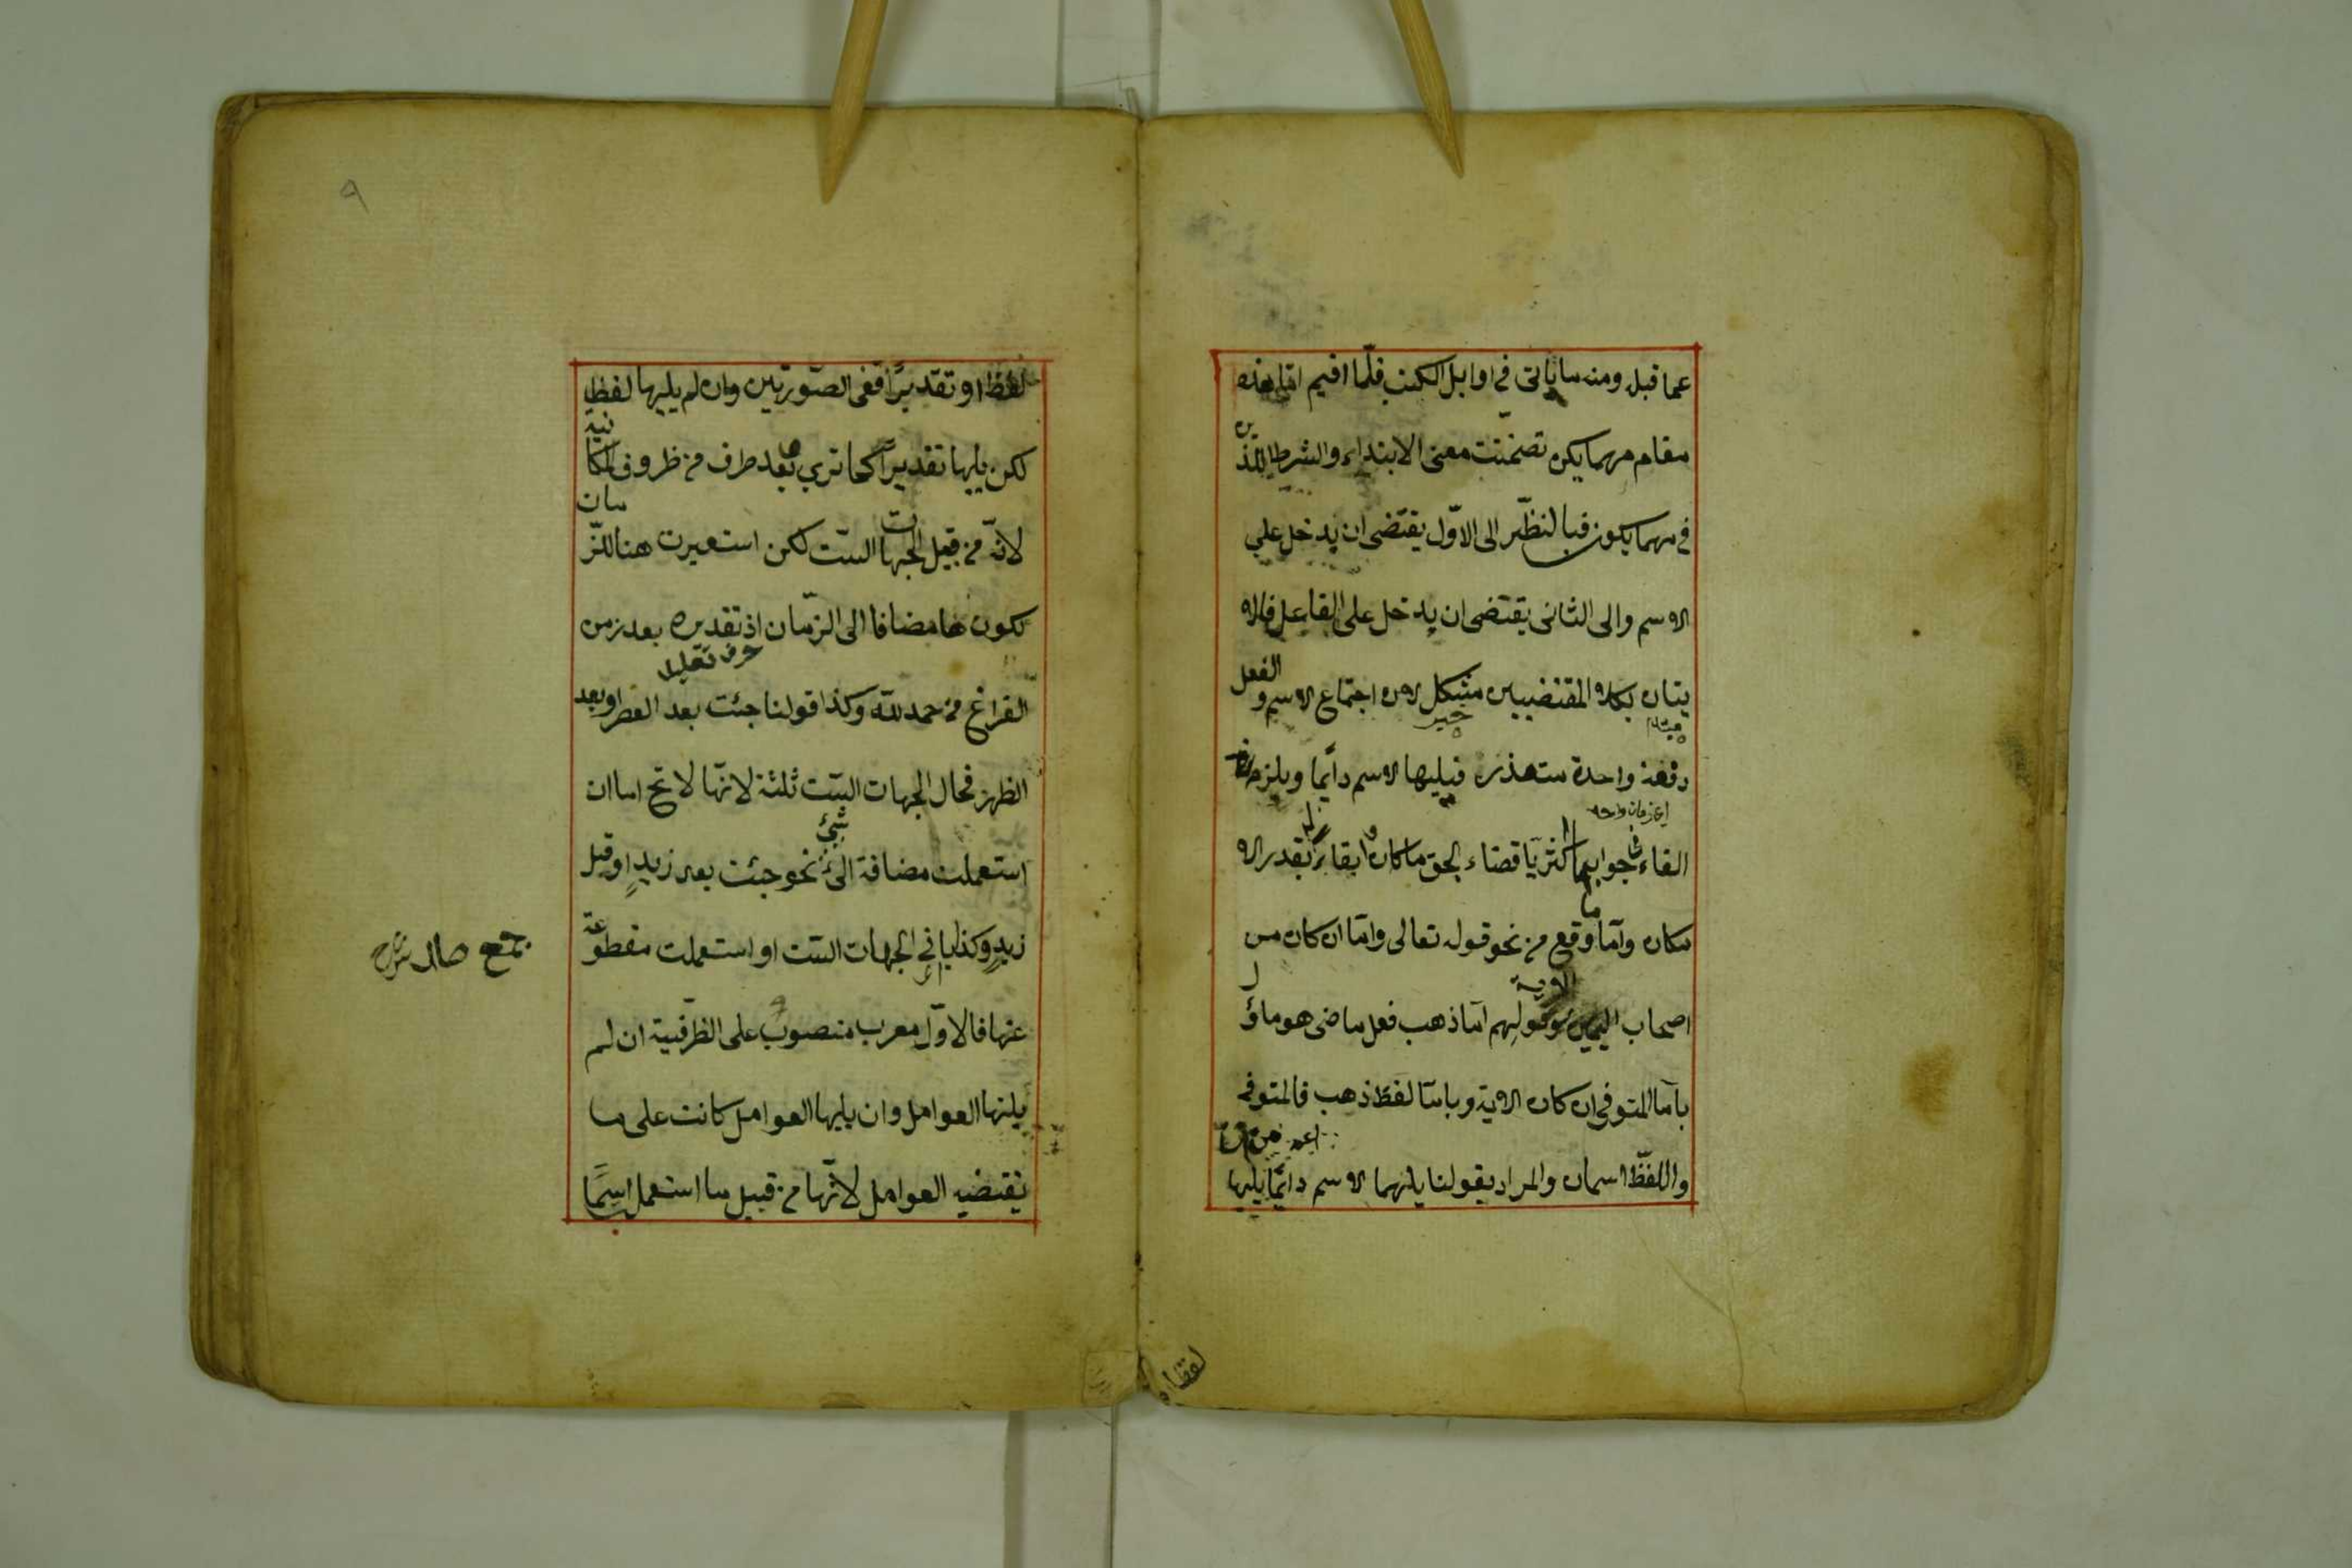 عما قبله ومنه ما يأتى فى اوايل الكتب فلمّا اقيم امّا هذه
مقام مهما يكن تضمّنت معنى الابتداء والشرط اللّذين
فى مهما يكون فبالنظر الى الاوّل يقتضى ان يدخل على
الاسم والى الثانى يقتضى ان يدخل على الفاعل فالا
يتان بكلا المقتضيين مشكل لان اجتماع الاسم والفعل
مبتدا خبر
دفعة واحدة متعذر فيليها الاسم دايمًا ويلزم
اى زمان واحد
الفاء فى جوابها اكثريا قضاء لحق ما كان وابقاء له بقدر الا
مكان وامّا ما وقع من نحو قوله تعالى وامّا ان كان من
اصحاب اليمين الاية وقولهم امّا ذهب فعل ماضى هو ماؤل
بامّا المتوفى ان كان الاية وبامّا لفظ ذهب فالمتوفى
واللفظ اسمان والمراد بقولنا يلزمها الاسم دايمًا يليها
لفظا او
٩
لفظا او تقديرًا ففى الصّورتين وان لم يليها لفظا
لكن يليها تقديرًا كما ترى وبعد ظرف من ظروف المكانية
لانّه من قبيل الجهات السّت لكن استعيرت هنا للزّمان
لكونها مضافا الى الزّمان اذ تقديره بعد زمن
حرف تعليل
الفراغ من حمد لله وكذا قولنا جئت بعد العصر او بعد
الظهر فحال الجهات السّت ثلثة لانّها لا تخ اما ان
استعملت مضافة الى شئ نحو جئت بعد زيدٍ او قبل
زيدٍ وكذا باقى الجهات السّت او استعملت مقطوعة
عنها فالاوّل معرب منصوب على الظرفية ان لم
يلزمها العوامل وان يليها العوامل كانت على ما
تقتضيه العوامل لانّها من قبيل ما استعمل اسمًا